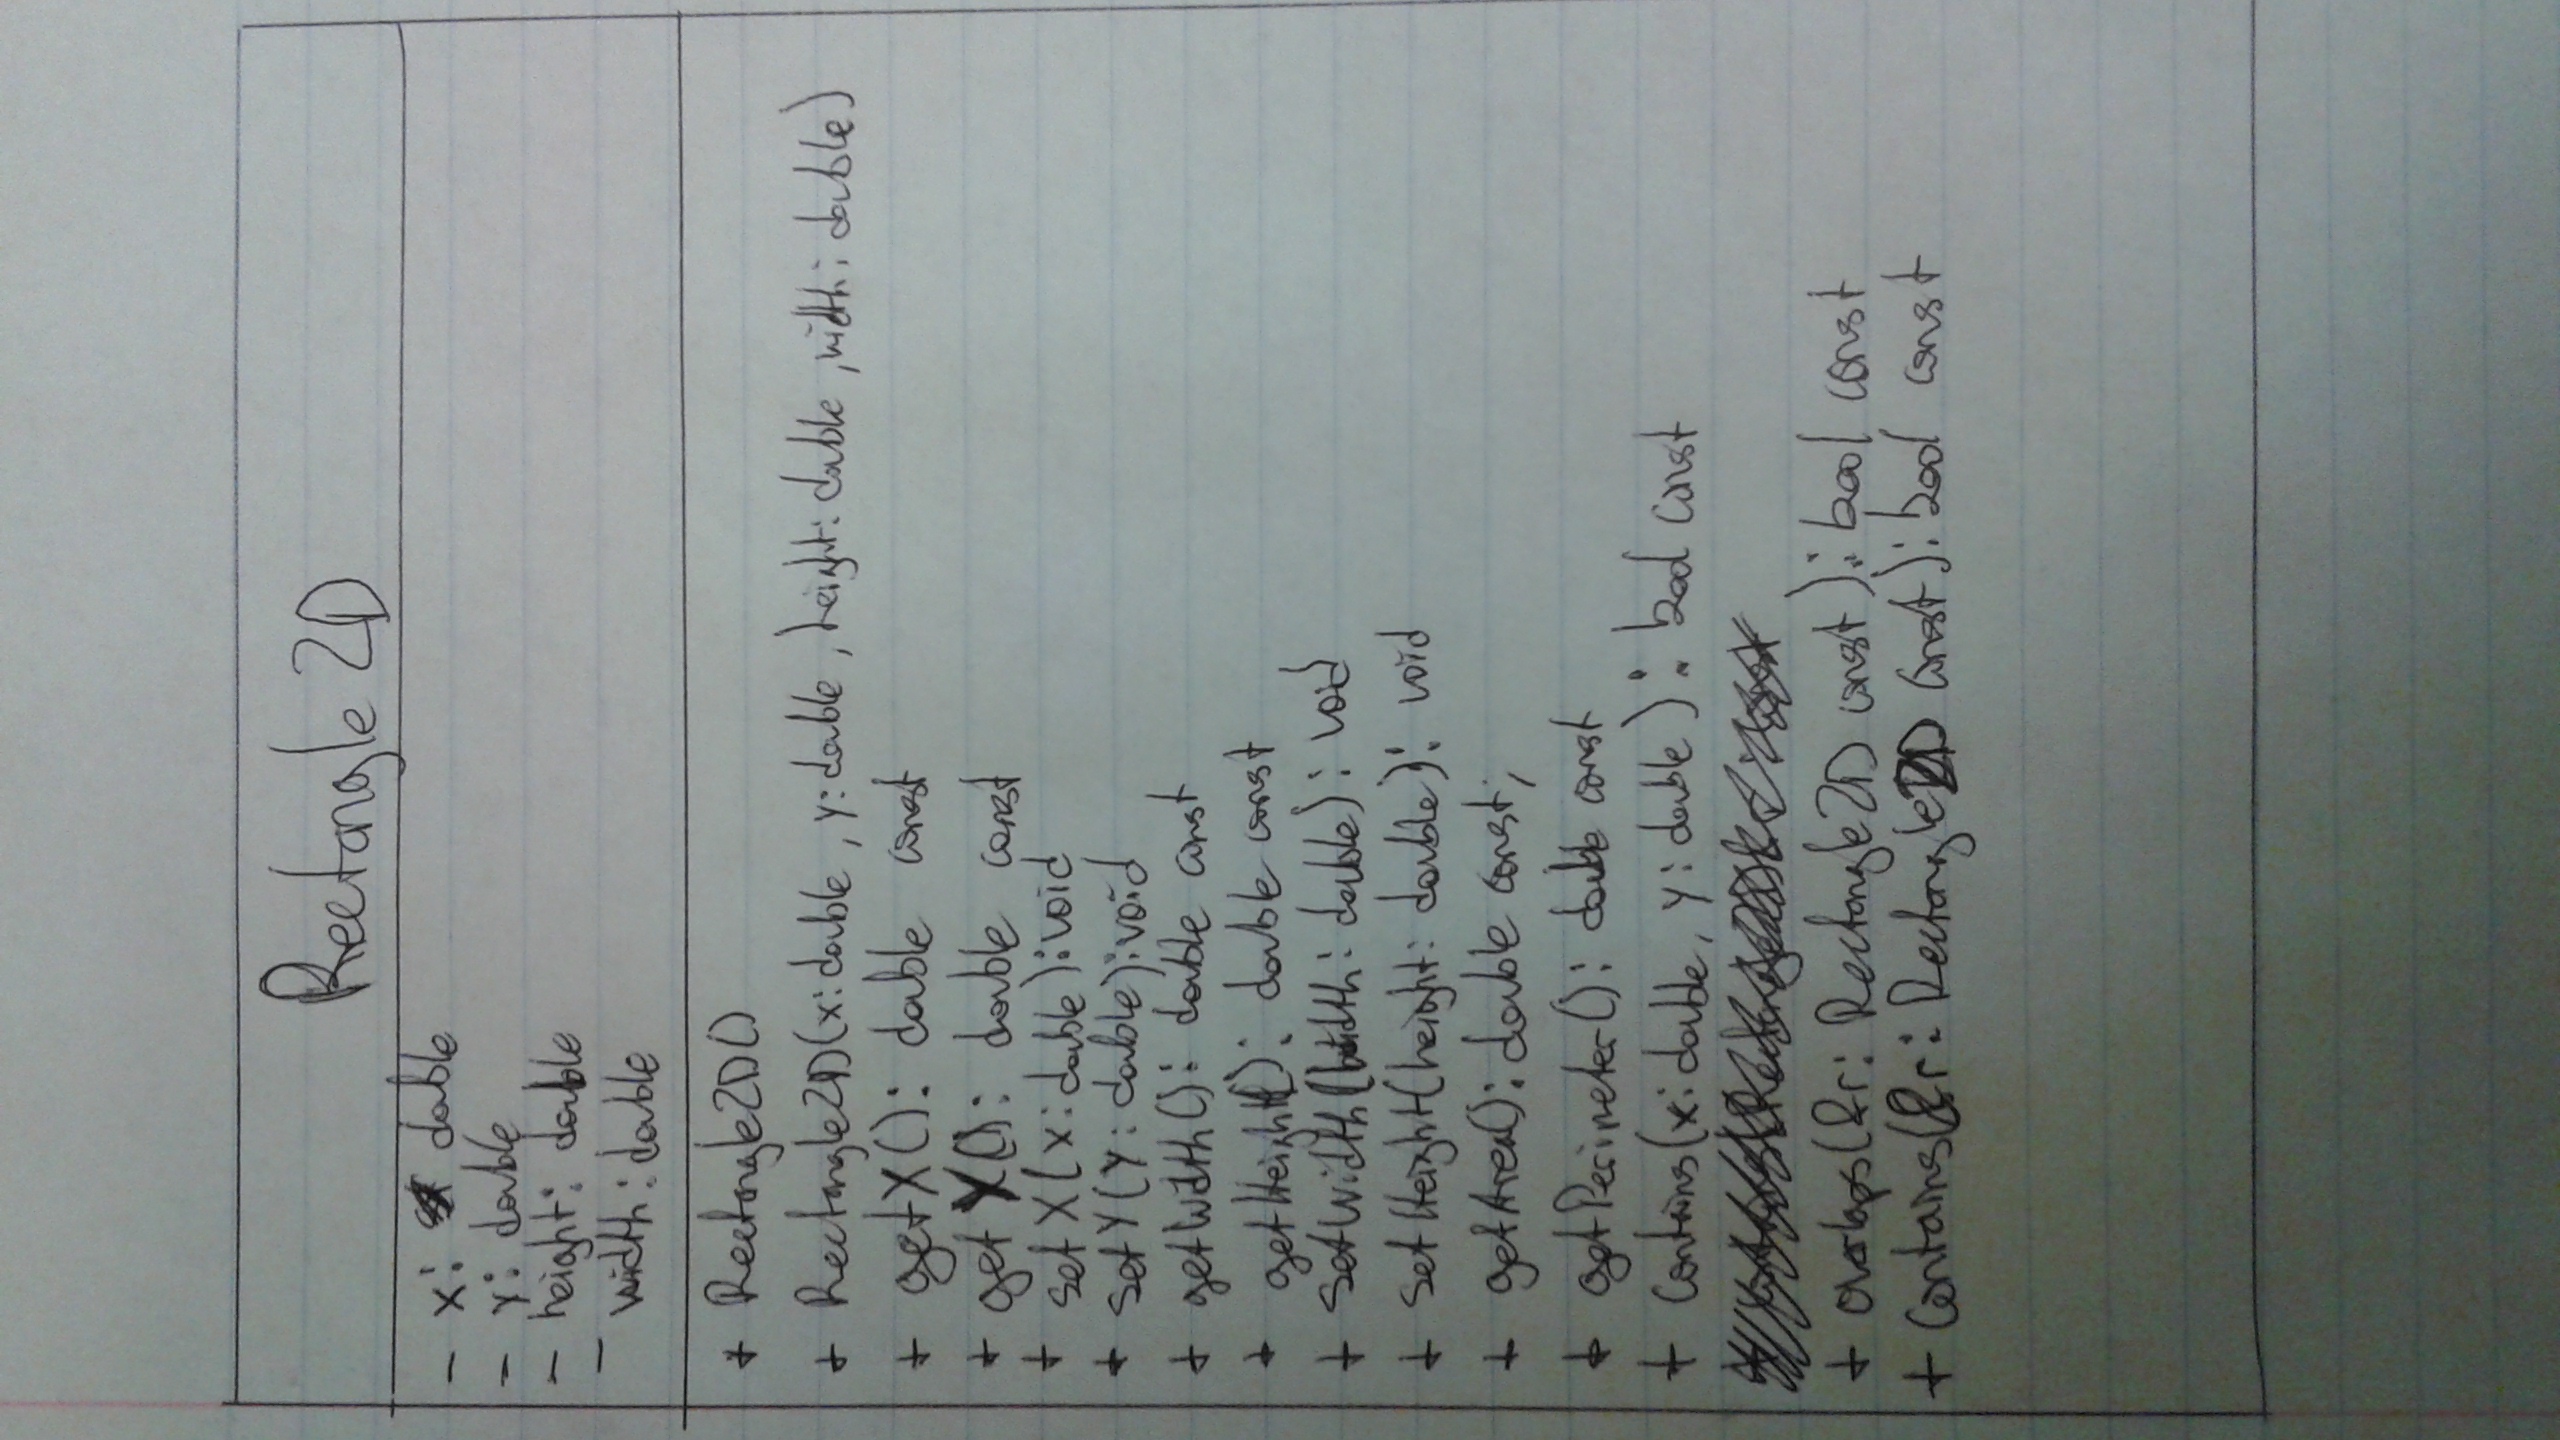 Rectangle 2D
- x: double
- y: double
- height: double
- width: double
+ Rectangle2D()
+ Rectangle2D(x:double, y:double, height: double, width: double)
+ getX(): double const
+ getY(): double const
+ setX(x:double):void
+ setY(y:double):void
+ getWidth(): double const
+ getHeight(): double const
+ setWidth(width: double): void
+ setHeight(height: double): void
+ getArea(): double const;
+ getPerimeter(): double const
+ Contains(x:double, y:double): bool const
+ overlaps(&r: Rectangle2D const): bool const
+ Contains(&r: Rectangle2D const): bool const